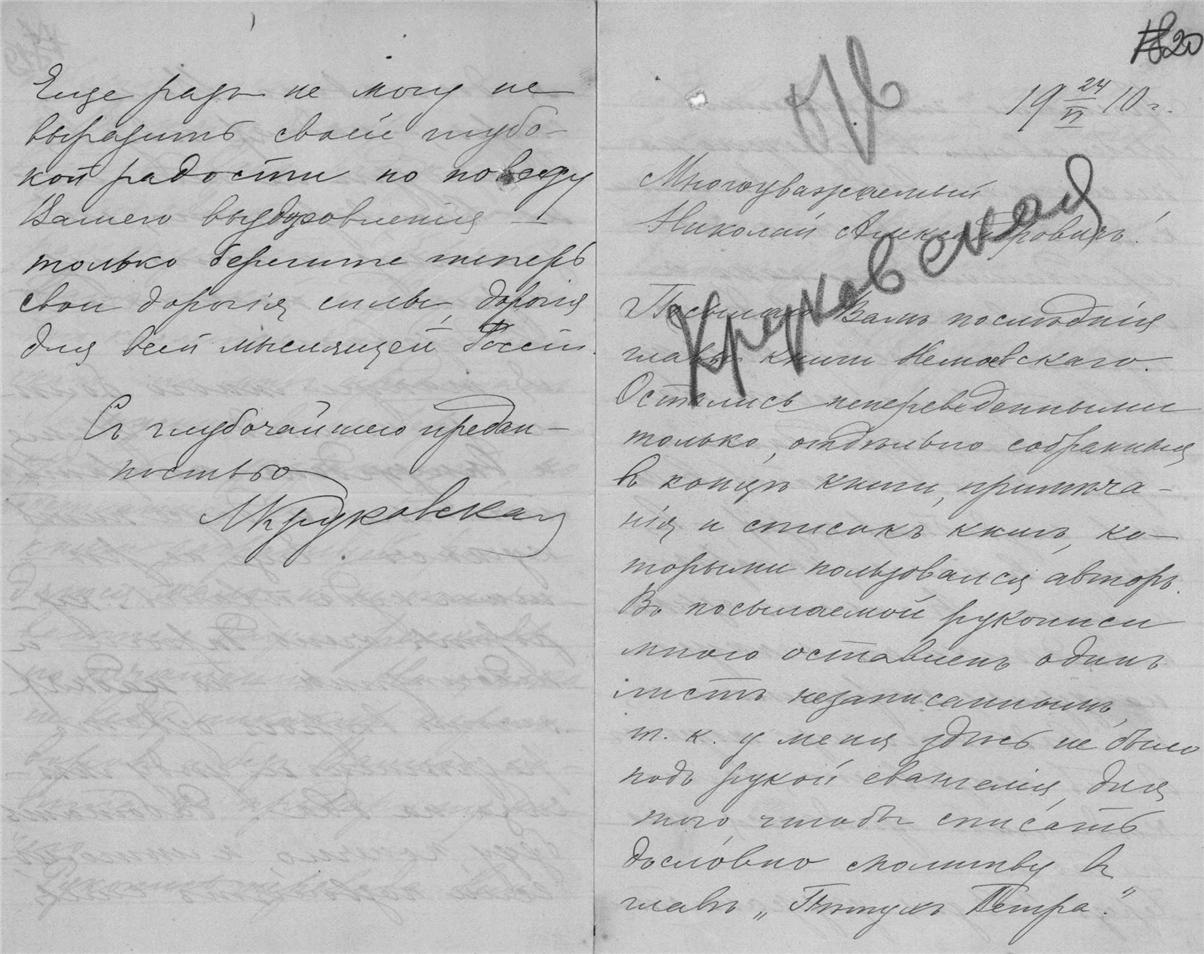 Еще разъ не могу не
выразить своей глубо-
кой радости по поводу
Вашего выздоровленія —
только берегите теперь
свои дорогія силы, дорогія
для всей мыслящей Россіи.
Съ глубочайшею предан-
ностью
МКруковская
20
19 24/VI 10 г.
Многоуважаемый
Николай Александровичъ!
Круковская
Посылаю Вамъ послѣднія
главы книги Немоевскаго.
Остались непереведенными
только, отдѣльно собранныя
въ концѣ книги, примѣча-
нія и списокъ книгъ, ко-
торыми пользовался авторъ.
Въ посылаемой рукописи
мною оставленъ одинъ
листъ незаписаннымъ,
т. к. у меня здѣсь не было
подъ рукой евангелія, для
того чтобы списать
дословно молитву въ
главѣ „Пѣтухъ Петра".